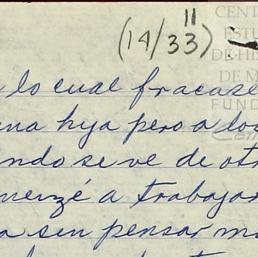 (14/33")
CENT
ESTU
DE HIS
DE M
FUND
lo cual fracase
una hija pero a los
ndo se ve de otr
menzé a trabajar
a sin pensar m